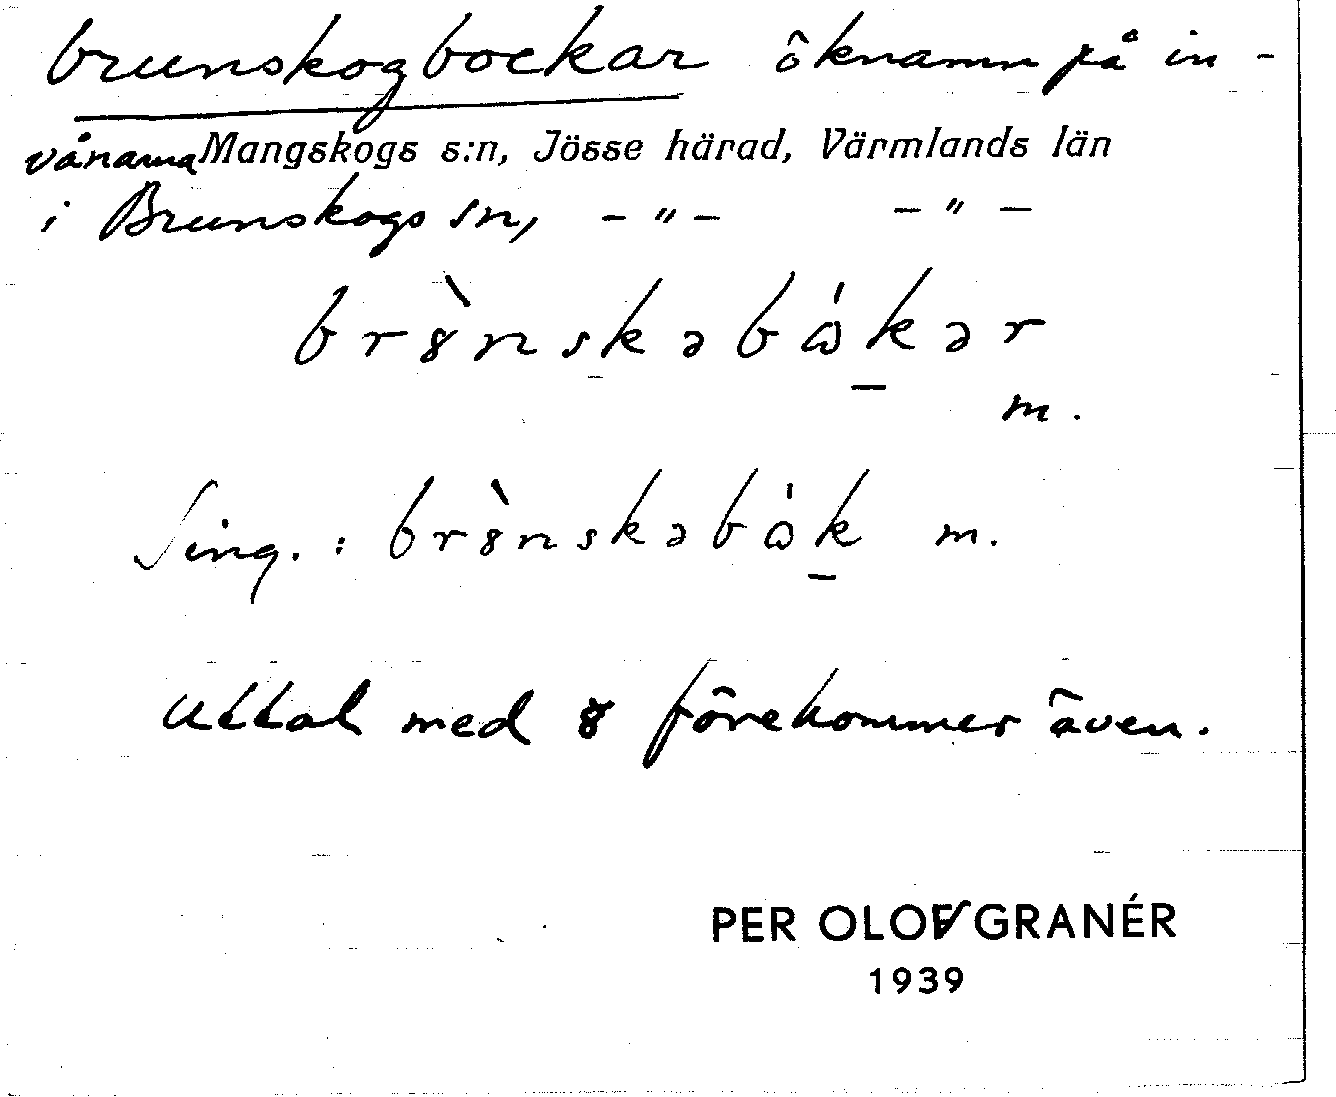 brunskogbockar öknamn på in-
vånarna Mangskogs s:n, Jösse härad, Värmlands län
i Brunskogs sn, – " – – " –
m.
Sing. : m.
Uttal med 8 förekommer även.
PER OLOV GRANÉR
1939